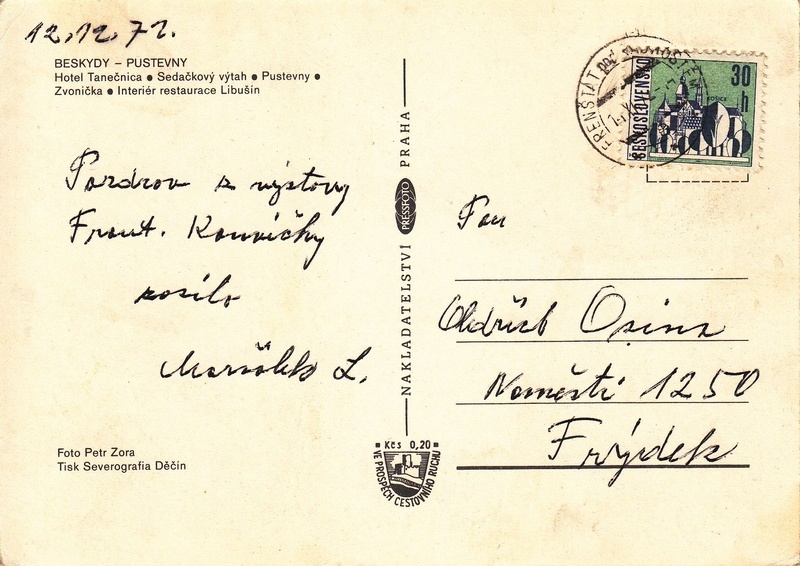 12.12.71.
BESKYDY – PUSTEVNY
Hotel Tanečnica ● Sedačkový výtah ● Pustevny ●
Zvonička ● Interiér restaurace Libušín
Pozdrav z výstavy
Frant. Konvičky
zasílá
L.
Foto Petr Zora
Tisk Severografia Děčín
NAKLADATELSTVÍ PRESSFOTO PRAHA
Kčs 0,20
VE PROSPĚCH CESTOVNÍHO RUCHU
FRENŠTÁT POD RADHOŠTĚM
ČESKOSLOVENSKO
30 h
Pan
Oldřich Osina
Náměstí 1250
Frýdek